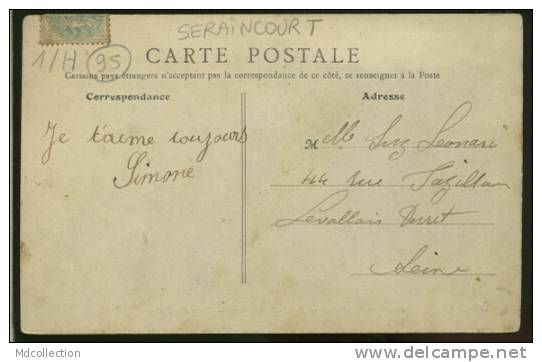 SERAINCOURT
1/H 95
CARTE POSTALE
Certains pays étrangers n'acceptant pas la correspondance de ce côté, se renseigner à la Poste
Correspondance
Adresse
Je t'aime toujours
Simone
Mlle Suz Leonari
44 rue
Levallois Perret
Seine
Mdcollection
delcampe.net